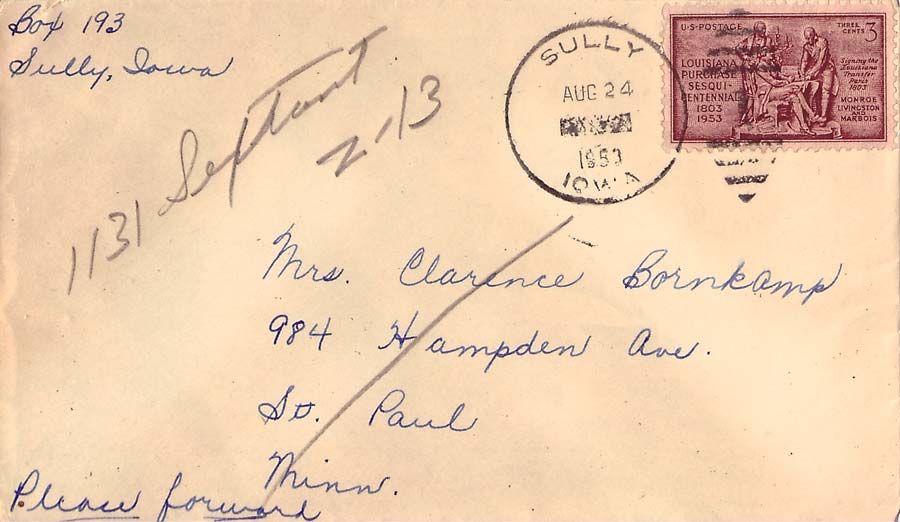 Box 193
Sully, Iowa
1131
2-13
SULLY
AUG 24
1953
IOWA
U·S·POSTAGE
THREE CENTS 3
LOUISIANA
PURCHASE
SESQUI-
CENTENNIAL
1803
1953
Signing the
Louisiana
Transfer
Paris
1803
MONROE
LIVINGSTON
AND
MARBOIS
Mrs. Clarence Bornkamp
984 Hampden Ave.
St. Paul
Minn.
Please forward